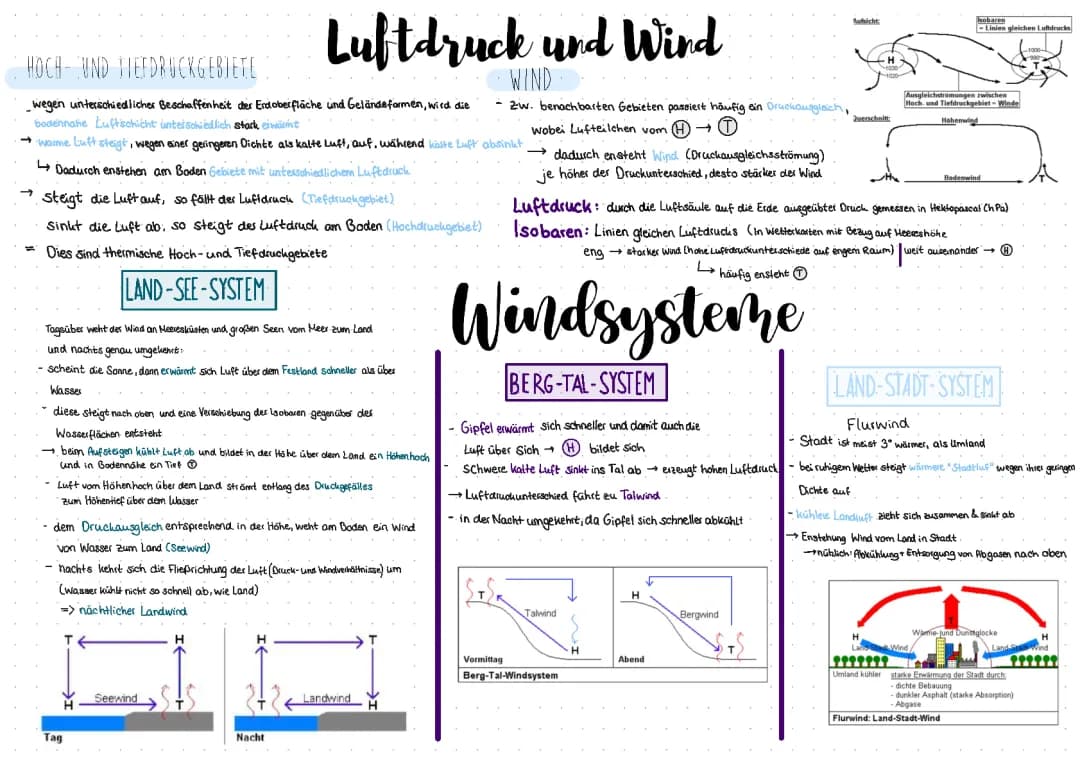 Luftdruck und Wind
HOCH- UND TIEFDRUCKGEBIETE
wegen unterschiedlicher Beschaffenheit der Erdoberfläche und Geländeformen, wird die
bodennahe Luftschicht unterschiedlich stark erwärmt
→ warme Luft steigt, wegen einer geringeren Dichte als kalte Luft, auf, während kalte Luft absinkt
↳ Dadurch enstehen am Boden Gebiete mit unterschiedlichem Luftdruck
→ steigt die Luft auf, so fällt der Luftdruck (Tiefdruckgebiet)
sinkt die Luft ab, so steigt des Luftdruck am Boden (Hochdruckgebiet)
= Dies sind thermische Hoch- und Tiefdruckgebiete
WIND
- zw. benachbarten Gebieten passiert häufig ein Druckausgleich,
wobei Lufteilchen vom H → T
→ dadurch ensteht Wind (Druckausgleichsströmung)
je höher der Druckunterschied, desto stärker der Wind
Luftdruck: durch die Luftsäule auf die Erde ausgeübter Druck gemessen in Hektopascal (hPa)
Isobaren: Linien gleichen Luftdrucks (In Wetterkarten mit Bezug auf Meereshöhe
eng → starker Wind (hohe Luftdruckunterschiede auf engem Raum) | weit auseinander → H
↳ häufig ensteht T
Aufsicht:
Isobaren
= Linien gleichen Luftdrucks
H
1030
1020
1000
T
Ausgleichströmungen zwischen
Hoch- und Tiefdruckgebiet = Winde
Querschnitt:
Höhenwind
H
Bodenwind
T
Windsysteme
LAND-SEE-SYSTEM
Tagsüber weht der Wind an Meeresküsten und großen Seen vom Meer zum Land
und nachts genau umgekehrt:
- scheint die Sonne, dann erwärmt sich Luft über dem Festland schneller als über
Wasser
- diese steigt nach oben und eine Verschiebung der Isobaren gegenüber des
Wasserflächen entsteht
→ beim Aufsteigen kühlt Luft ab und bildet in der Höhe über dem Land ein Höhenhoch
und in Bodennähe ein Tief T
- Luft vom Höhenhoch über dem Land strömt entlang des Druckgefälles
zum Höhentief über dem Wasser
- dem Druckausgleich entsprechend in der Höhe, weht am Boden ein Wind
von Wasser zum Land (Seewind)
- nachts kehrt sich die Fließrichtung der Luft (Druck- und Windverhältnisse) um
(Wasser kühlt nicht so schnell ab, wie Land)
=> nächtlicher Landwind
T H
Seewind
H T
Tag
H T
Landwind
T H
Nacht
BERG-TAL-SYSTEM
- Gipfel erwärmt sich schneller und damit auch die
Luft über sich → H bildet sich
- Schwere kalte Luft sinkt ins Tal ab → erzeugt hohen Luftdruck
→ Luftdruckunterschied führt zu Talwind
- in der Nacht umgekehrt, da Gipfel sich schneller abkühlt
T
Talwind
H
Vormittag
H
Bergwind
T
Abend
Berg-Tal-Windsystem
LAND-STADT-SYSTEM
Flurwind
- Stadt ist meist 3° wärmer, als Umland
- bei ruhigem Wetter steigt wärmere "Stadtluf" wegen ihrer geringen
Dichte auf
- kühlere Landluft zieht sich zusammen & sinkt ab
→ Enstehung Wind vom Land in Stadt
→ nühlich: Abkühlung + Entsorgung von Abgasen nach oben
T
H Wärme- und Dunstglocke H
Land-Stadt-Wind Land-Stadt-Wind
Umland kühler starke Erwärmung der Stadt durch:
- dichte Bebauung
- dunkler Asphalt (starke Absorption)
- Abgase
Flurwind: Land-Stadt-Wind